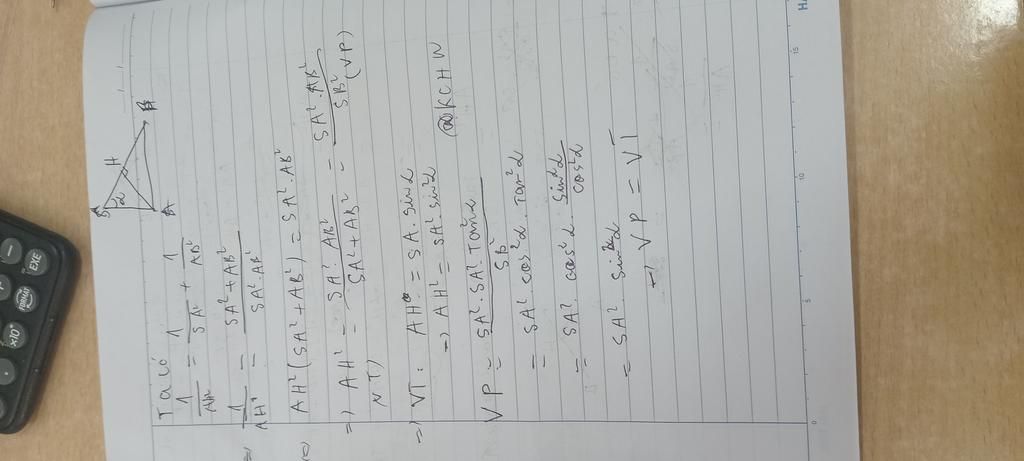 S
α
H
B
A
Ta có
1/AH² = 1/SA² + 1/AB²
1/AH² = (SA² + AB²)/(SA² . AB²)
AH² (SA² + AB²) = SA² . AB²
=> AH² = (SA² . AB²)/(SA² + AB²) = (SA² . AB²)/SB² (VP)
=> VT: AH = SA . sin α
=> AH² = SA² . sin²α
@KCHW
VP = (SA² . SA² . Tan²α)/SB²
= SA² cos²α . Tan²α
= SA² cos²α . sin²α/cos²α
= SA² sin²α
=> VP = VT
0
5
10
15
EXE
FORMAT
×10